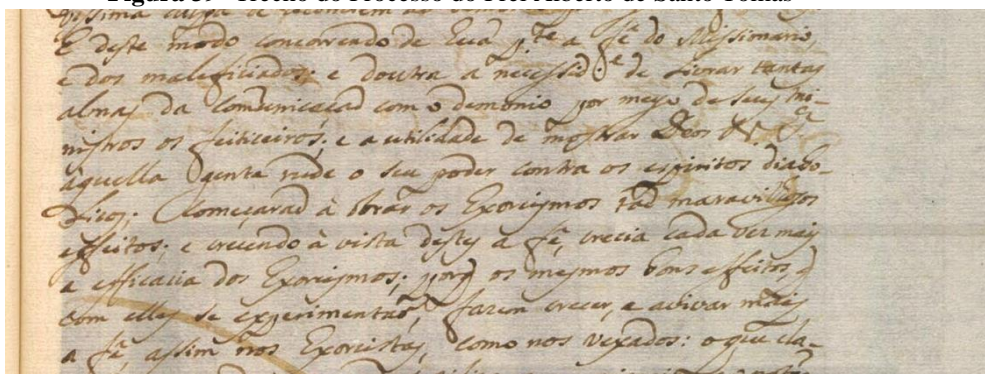 Figura 39 - Trecho do Processo do Frei Alberto de Santo Tomás
E deste modo concorrendo de huã p.te a fé do Missionario,
e dos maleficiados; e doutra a necessid.e de livrar tantas
almas da comunicaçaõ com o demonio por meyo de seus mi-
nistros os feiticeiros; e a utilidade de mostrar Deos N. S.
àquella gente rude o seu poder contra os espiritos diabo-
licos; Começaraõ à obrar os Exorcismos taõ maravilhosos
effeitos; e crecendo à vista destes a fé, crecia cada vez mais
a efficacia dos Exorcismos; porq os mesmos bons effeitos, q
com elles se experimentaõ, fazem crecer, e avivar mais
a fé assim nos Exorcistas, como nos vexados: o que cla-